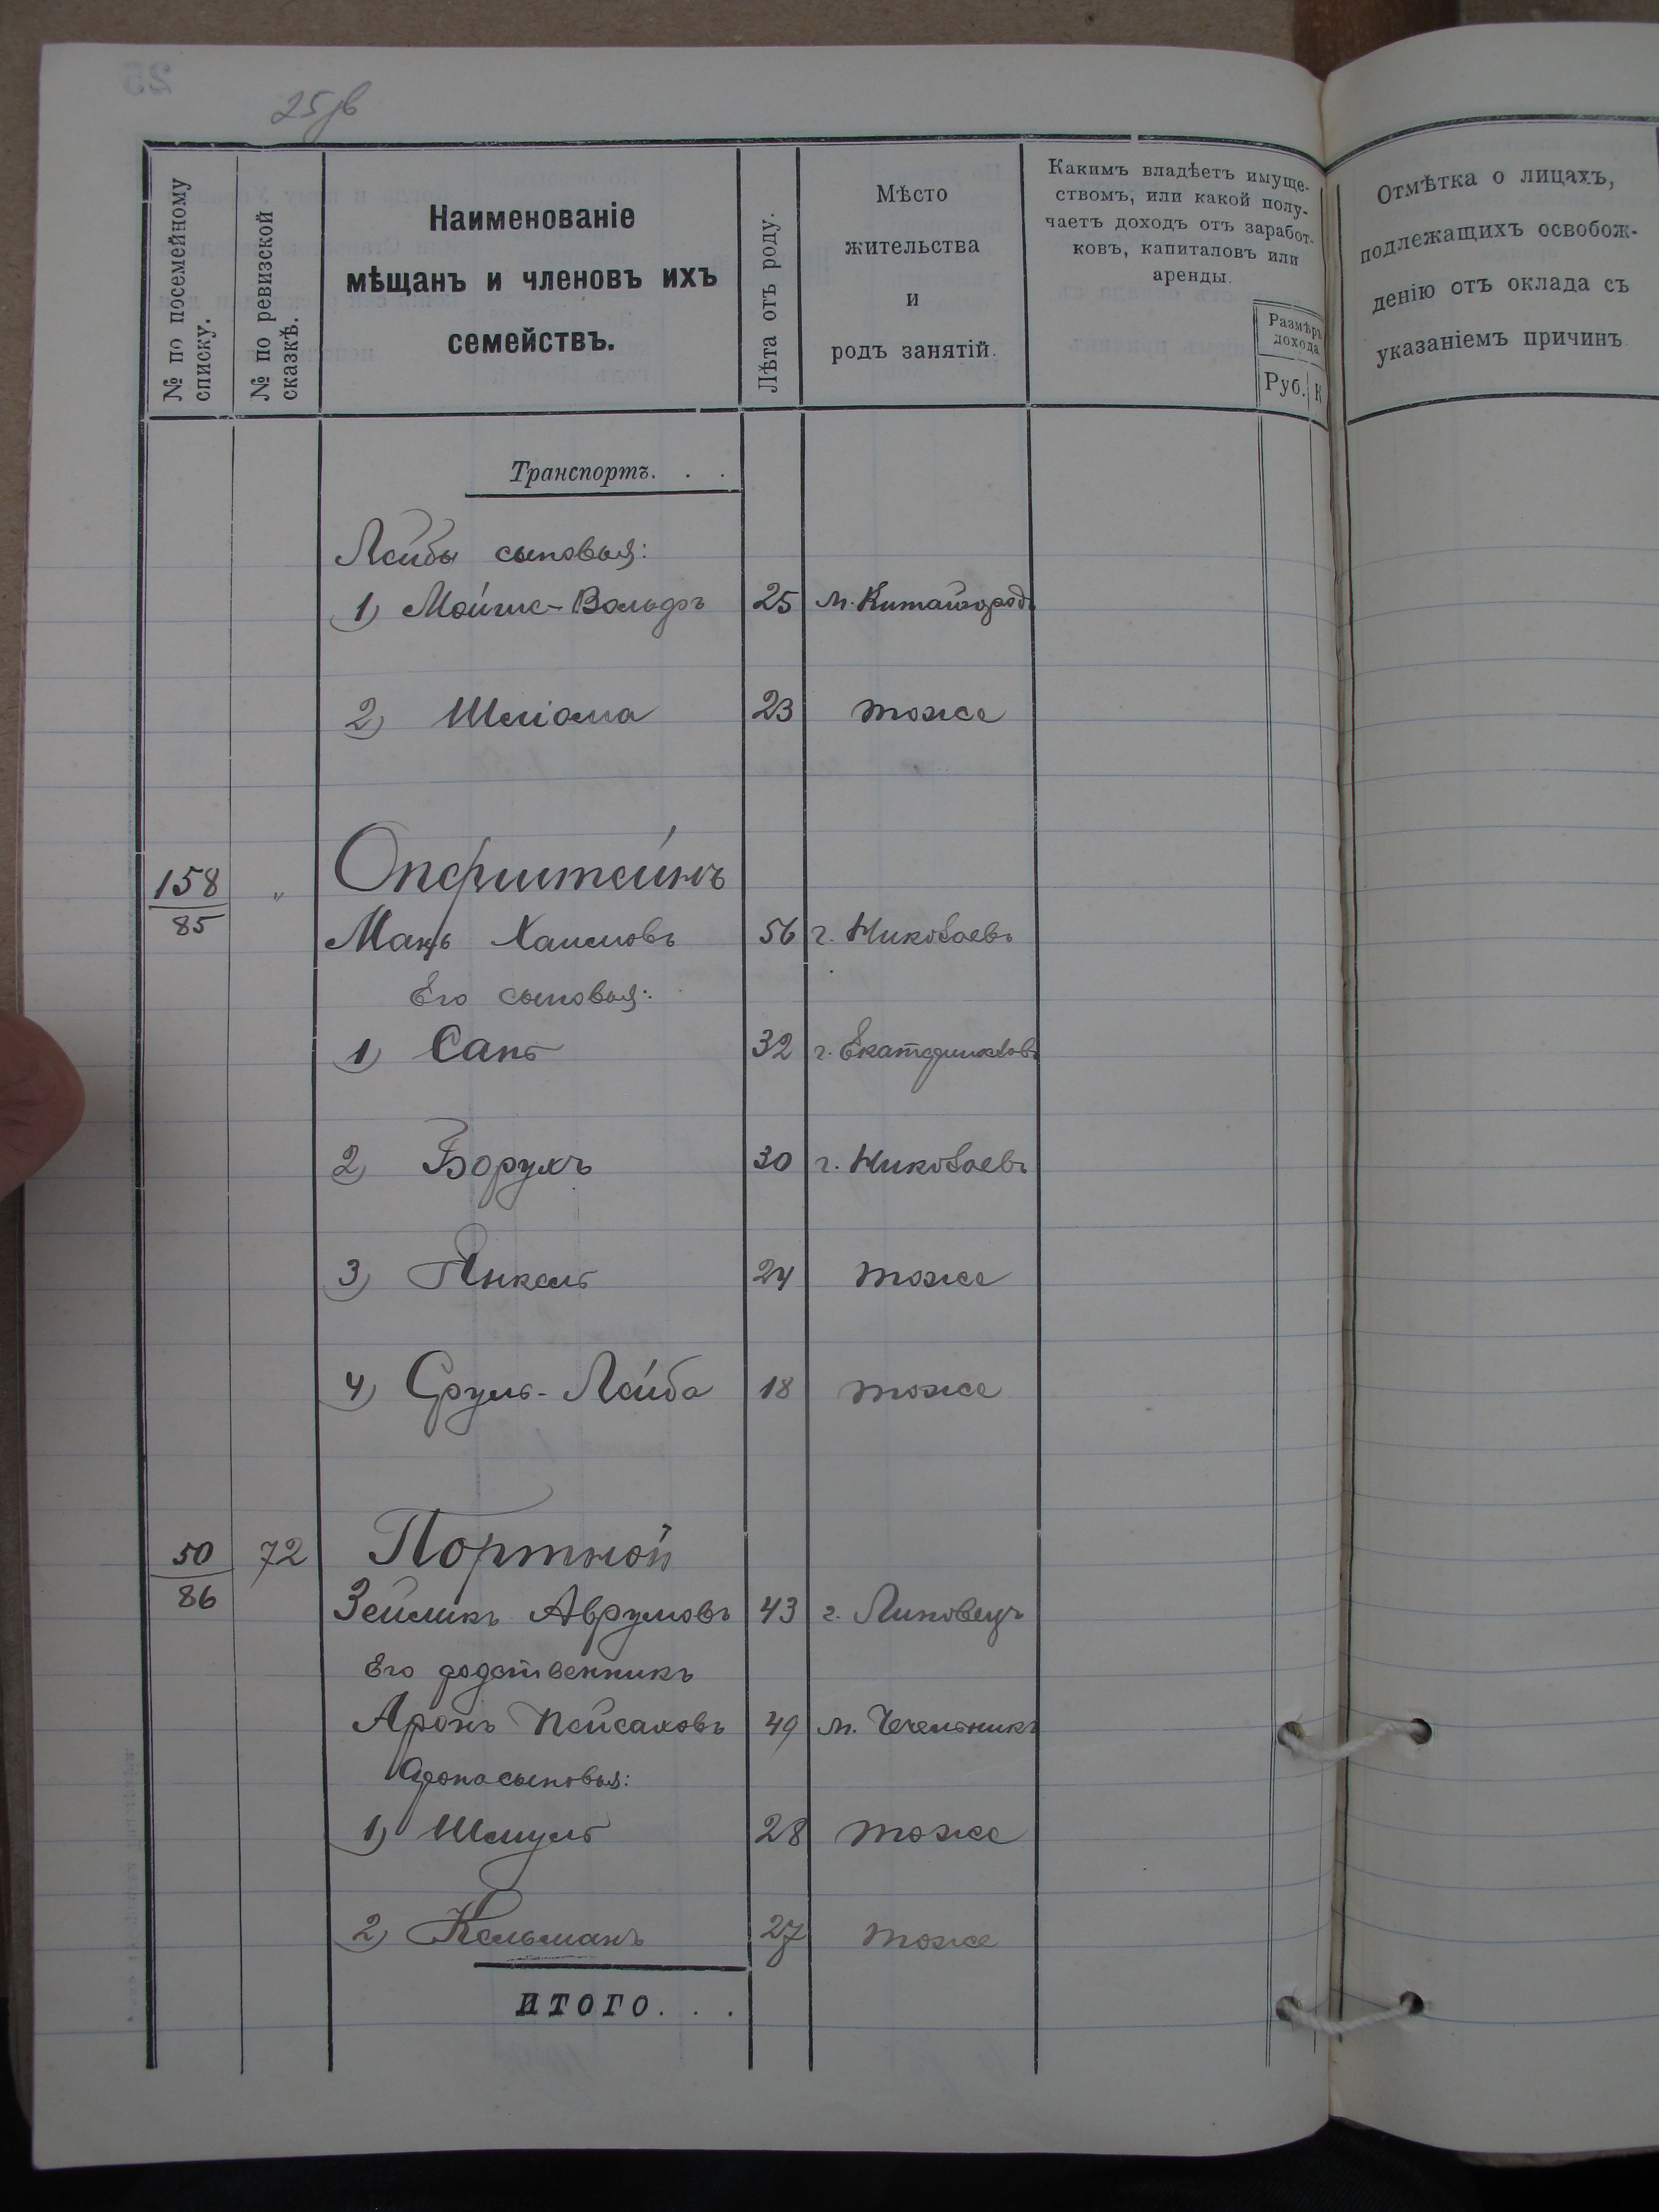 25
25 зв
№ по посемейному
списку.
№ по ревизской
сказкѣ.
Наименованіе
мѣщанъ и членовъ ихъ
семействъ.
Лѣта отъ роду.
Мѣсто
жительства
и
родъ занятій.
Какимъ владѣетъ имуще-
ствомъ, или какой полу-
чаетъ доходъ отъ заработ-
ковъ, капиталовъ или
аренды.
Размѣръ
дохода
Руб. К
Отмѣтка о лицахъ,
подлежащихъ освобож-
денію отъ оклада съ
указаніемъ причинъ
Транспортъ. . .
Лейбы сыновья:
1) Мойше-Вольфъ 25 м. Китайгородъ
2) Шліома 23 тоже
158 „ Оперштейнъ
85 Хаимовъ 56 г. Николаевъ
Его сыновья:
1) 32 г. Екатеринославъ
2) Борухъ 30 г. Николаевъ
3) Янкель 24 тоже
4) Сруль-Лейба 18 тоже
50 72 Портной
86 Зейликъ Аврумовъ 43 г. Липовецъ
Его родственникъ
Аронъ Пейсаховъ 49 м. Чечельникъ
Арона сыновья:
1) Шмуль 28 тоже
2) Кельманъ 27 тоже
ИТОГО. . .